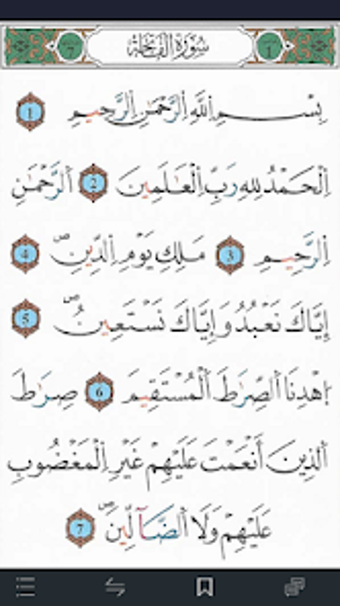 سُورَةُ الْفَاتِحَةِ
بِسْمِ اللَّهِ الرَّحْمَٰنِ الرَّحِيمِ 1
الْحَمْدُ لِلَّهِ رَبِّ الْعَالَمِينَ 2 الرَّحْمَٰنِ
الرَّحِيمِ 3 مَلِكِ يَوْمِ الدِّينِ ص 4
إِيَّاكَ نَعْبُدُ وَإِيَّاكَ نَسْتَعِينُ ص 5
اِهْدِنَا الصِّرَٰطَ الْمُسْتَقِيمَ 6 صِرَٰطَ
الَّذِينَ أَنْعَمْتَ عَلَيْهِمْ غَيْرِ الْمَغْضُوبِ
عَلَيْهِمْ وَلَا الضَّآلِّينَ ص 7